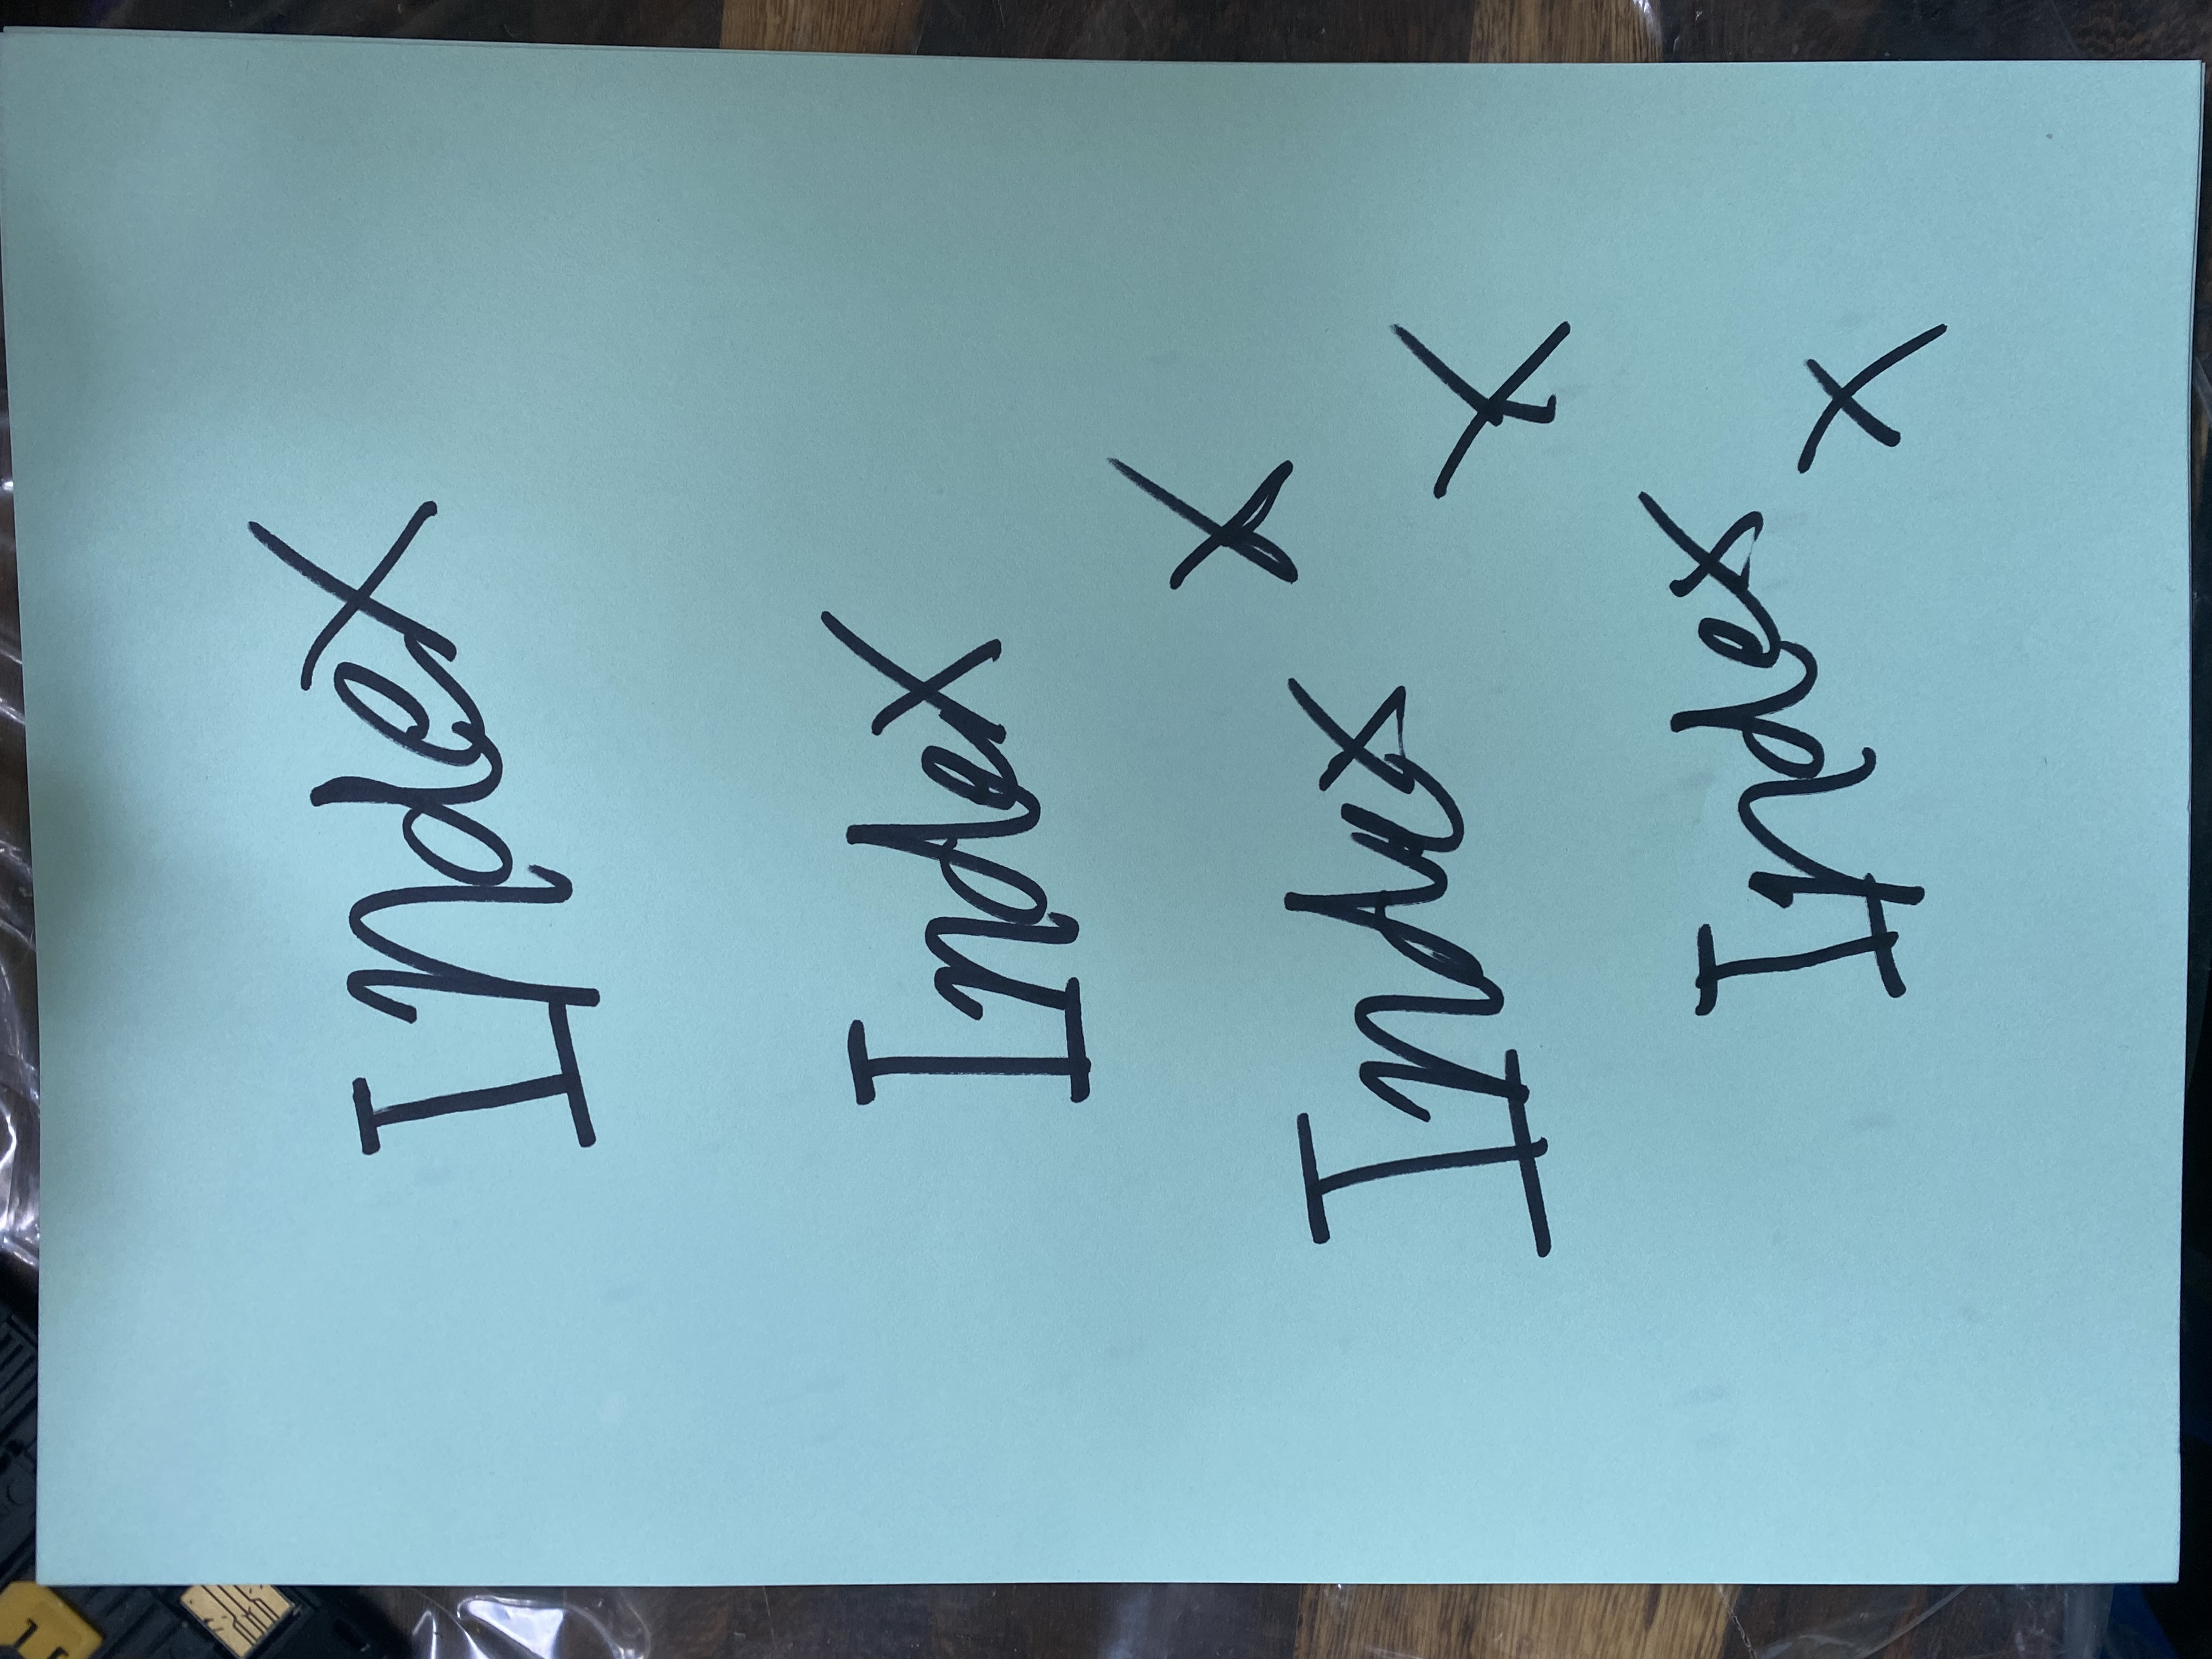 Index
Index
x
Index
x
Index
x